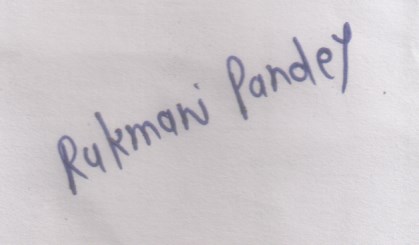 Rukmani Pandey